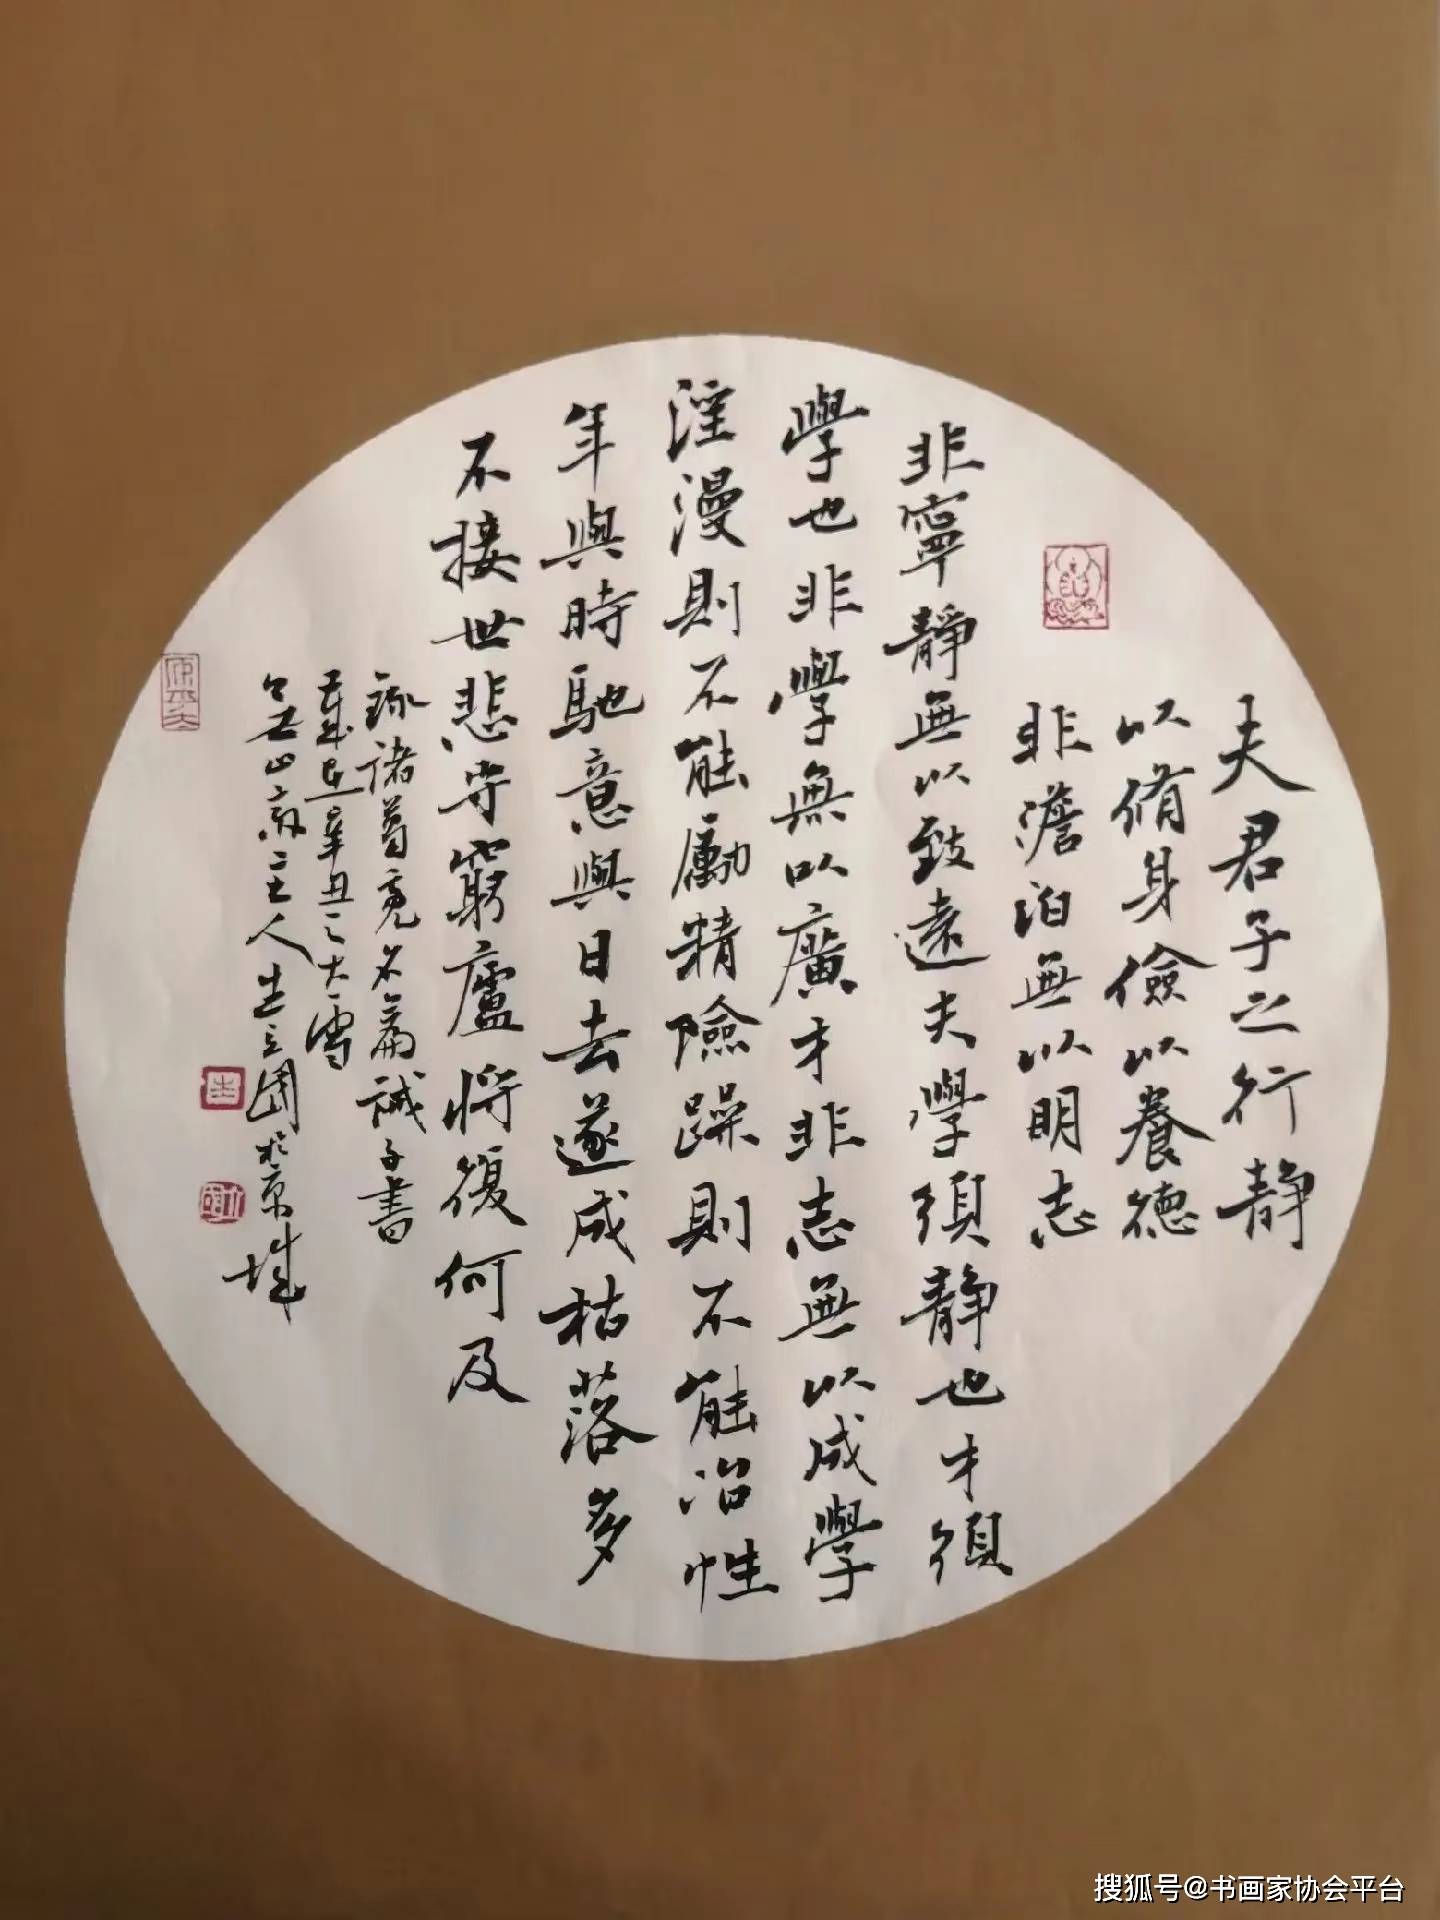 夫君子之行静
以脩身儉以養德
非澹泊無以明志
非寧靜無以致遠夫學須靜也才須
學也非學無以廣才非志無以成學
淫漫則不能勵精險躁則不能治性
年與時馳意與日去遂成枯落多
不接世悲守窮廬將復何及
錄諸葛亮名篇誡子書
歲在辛丑之大雪
山齋主人生立國於京城
搜狐号@书画家协会平台